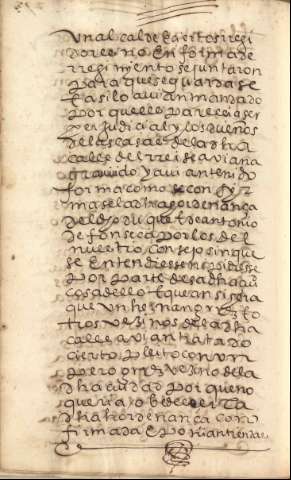 un alcalde e ciertos regi
dores no en forma de
rregimiento se juntaron
para que se guardase
e asi lo avian mandado
por que ello parecia ser
perjudicial y los dueños
de las casas de la dha
calle del rrei se avian a
graviado y avian tenido
forma como se confir
mase la dha ordenança
del dho duque e de antonio
de fonseca por los del
nuestro consejo sin que
se entendiese ni supiese
por parte de la dha
cosa dello e que ansi hera
que un hernan peres e o
tros vezinos de la dha
calle avian tratado
cierto pleito con un
pero peres vezino de la
dha ciudad por que no
queria obedecer la
dha hordenança con
firmada e por